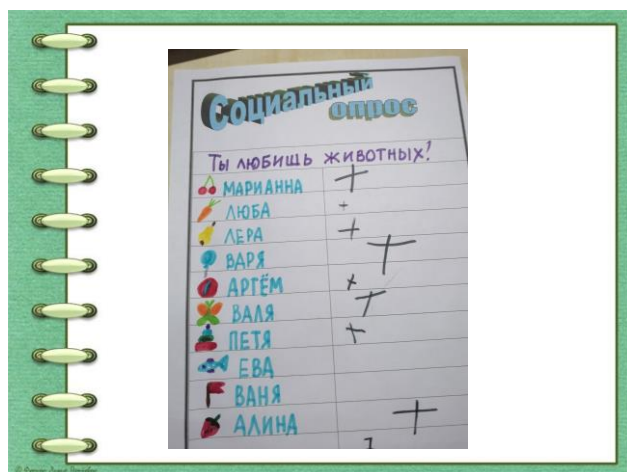 Социальный
опрос
Ты любишь животных?
МАРИАННА +
ЛЮБА +
ЛЕРА +
ВАРЯ +
АРТЁМ +
ВАЛЯ +
ПЕТЯ +
ЕВА
ВАНЯ
АЛИНА +